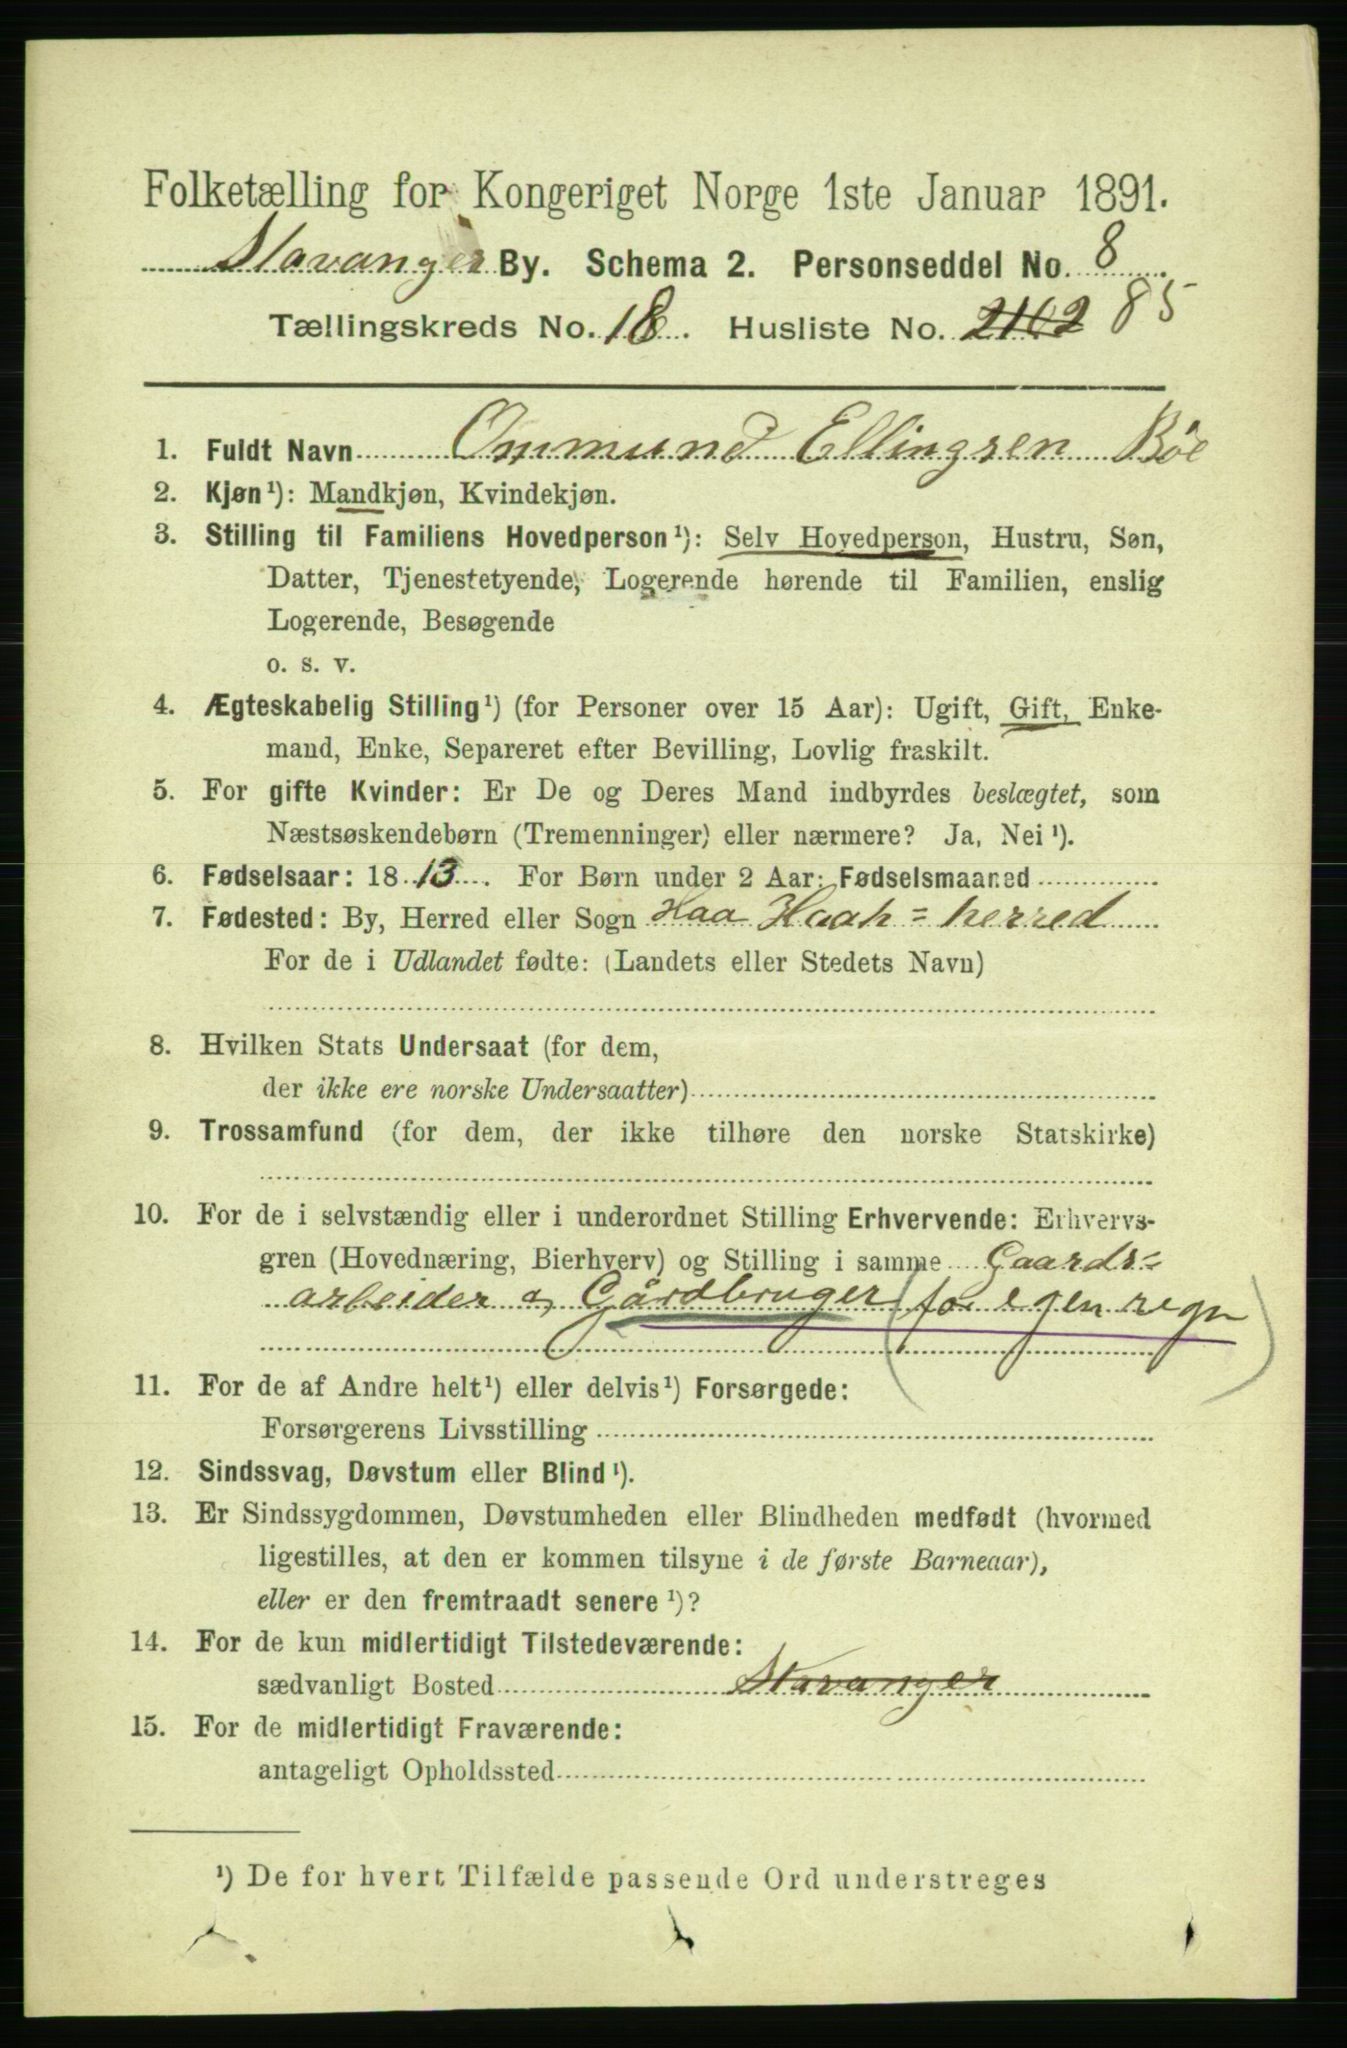 Folketælling for Kongeriget Norge 1ste Januar 1891.
Stavanger By. Schema 2. Personseddel No. 8
Tællingskreds No. 18. Husliste No. 2102 85
1. Fuldt Navn Ommund Ellingsen Bøe
2. Kjøn¹): Mandkjøn, Kvindekjøn.
3. Stilling til Familiens Hovedperson¹): Selv Hovedperson, Hustru, Søn,
Datter, Tjenestetyende, Logerende hørende til Familien, enslig
Logerende, Besøgende
o. s. v.
4. Ægteskabelig Stilling¹) (for Personer over 15 Aar): Ugift, Gift, Enke-
mand, Enke, Separeret efter Bevilling, Lovlig fraskilt.
5. For gifte Kvinder: Er De og Deres Mand indbyrdes beslægtet, som
Næstsøskendebørn (Tremenninger) eller nærmere? Ja, Nei¹).
6. Fødselsaar: 18 13. For Børn under 2 Aar: Fødselsmaaned
7. Fødested: By, Herred eller Sogn Haa Haah=herred
For de i Udlandet fødte: (Landets eller Stedets Navn)
8. Hvilken Stats Undersaat (for dem,
der ikke ere norske Undersaatter)
9. Trossamfund (for dem, der ikke tilhøre den norske Statskirke)
10. For de i selvstændig eller i underordnet Stilling Erhvervende: Erhvervs-
gren (Hovednæring, Bierhverv) og Stilling i samme Gaards=
arbeider og Gårdbruger (for egen regn)
11. For de af Andre helt¹) eller delvis¹) Forsørgede:
Forsørgerens Livsstilling
12. Sindssvag, Døvstum eller Blind¹).
13. Er Sindssygdommen, Døvstumheden eller Blindheden medfødt (hvormed
ligestilles, at den er kommen tilsyne i de første Barneaar),
eller er den fremtraadt senere¹)?
14. For de kun midlertidigt Tilstedeværende:
sædvanligt Bosted Stavanger
15. For de midlertidigt Fraværende:
antageligt Opholdssted
¹) De for hvert Tilfælde passende Ord understreges